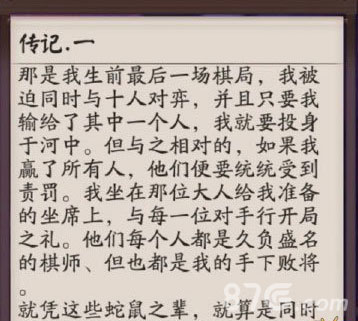 传记.一
那是我生前最后一场棋局，我被
迫同时与十人对弈，并且只要我
输给了其中一个人，我就要投身
于河中。但与之相对的，如果我
赢了所有人，他们便要统统受到
责罚。我坐在那位大人给我准备
的坐席上，与每一位对手行开局
之礼。他们每个人都是久负盛名
的棋师、但也都是我的手下败将
。
就凭这些蛇鼠之辈，就算是同时